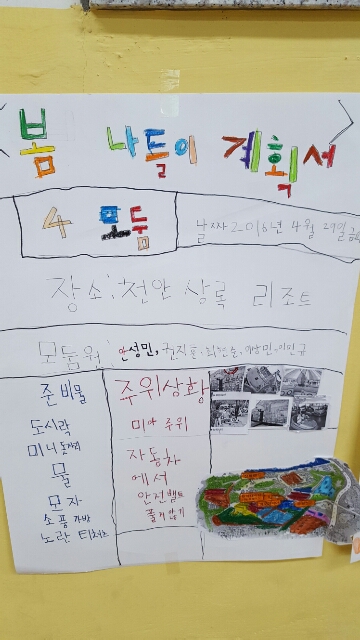 <봄 나들이 계획서>
4 모둠
날짜 2016년 4월 29일 금
장소: 천안 상록 리조트
모둠원: 안성민,
준비물
도시락
미니 돗자리
물
모자
소풍가방
노란 티셔츠
주위상황
미아 주위
자동차
에서
안전벨트
풀지않기